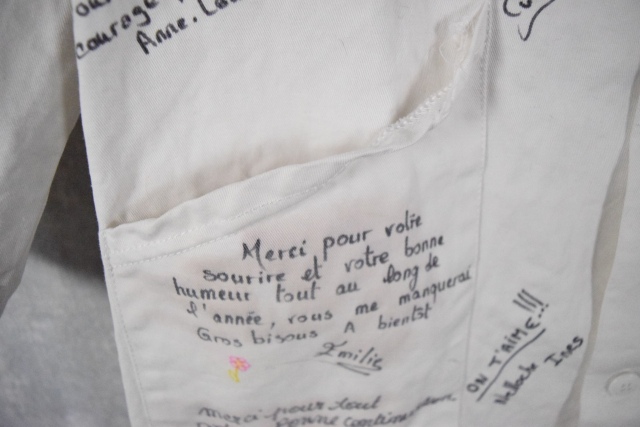 courage
Anne. Lau
Merci pour votre
sourire et votre bonne
humeur tout au long de
l'année, vous me manquerai
Gros bisous A bientôt
Emilie
ON T'AIME!!!
Ines
merci pour tout
bonne continuation